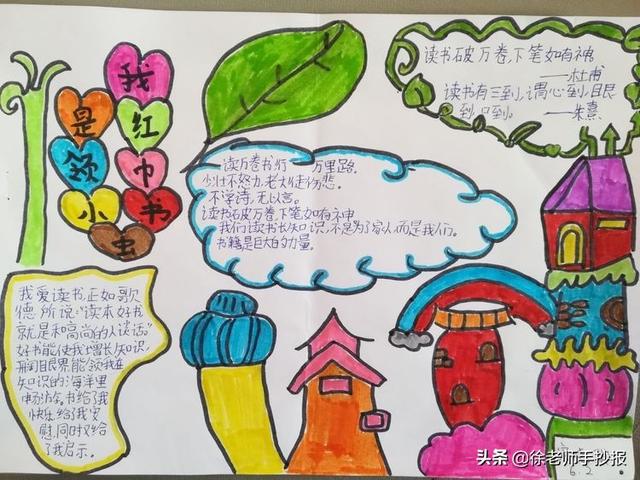 我
是红
领巾
小书
虫
读书破万卷,下笔如有神
——杜甫
读书有三到,谓心到,眼
到,口到。——朱熹
读万卷书,行万里路。
少壮不努力,老大徒伤悲。
不学诗,无以言。
读书破万卷,下笔如有神
我们读书长知识,不是为了家人而是我们。
书籍是巨大的力量。
我爱读书,正如歌
德所说:“读本好书
就是和高尚的人谈话”
好书能使我增长知识,
开阔眼界,能
知识的海洋里
畅游。书给了我
快乐,给了我安
慰,同时又给
了我启示。
6.2
头条 @徐老师手抄报